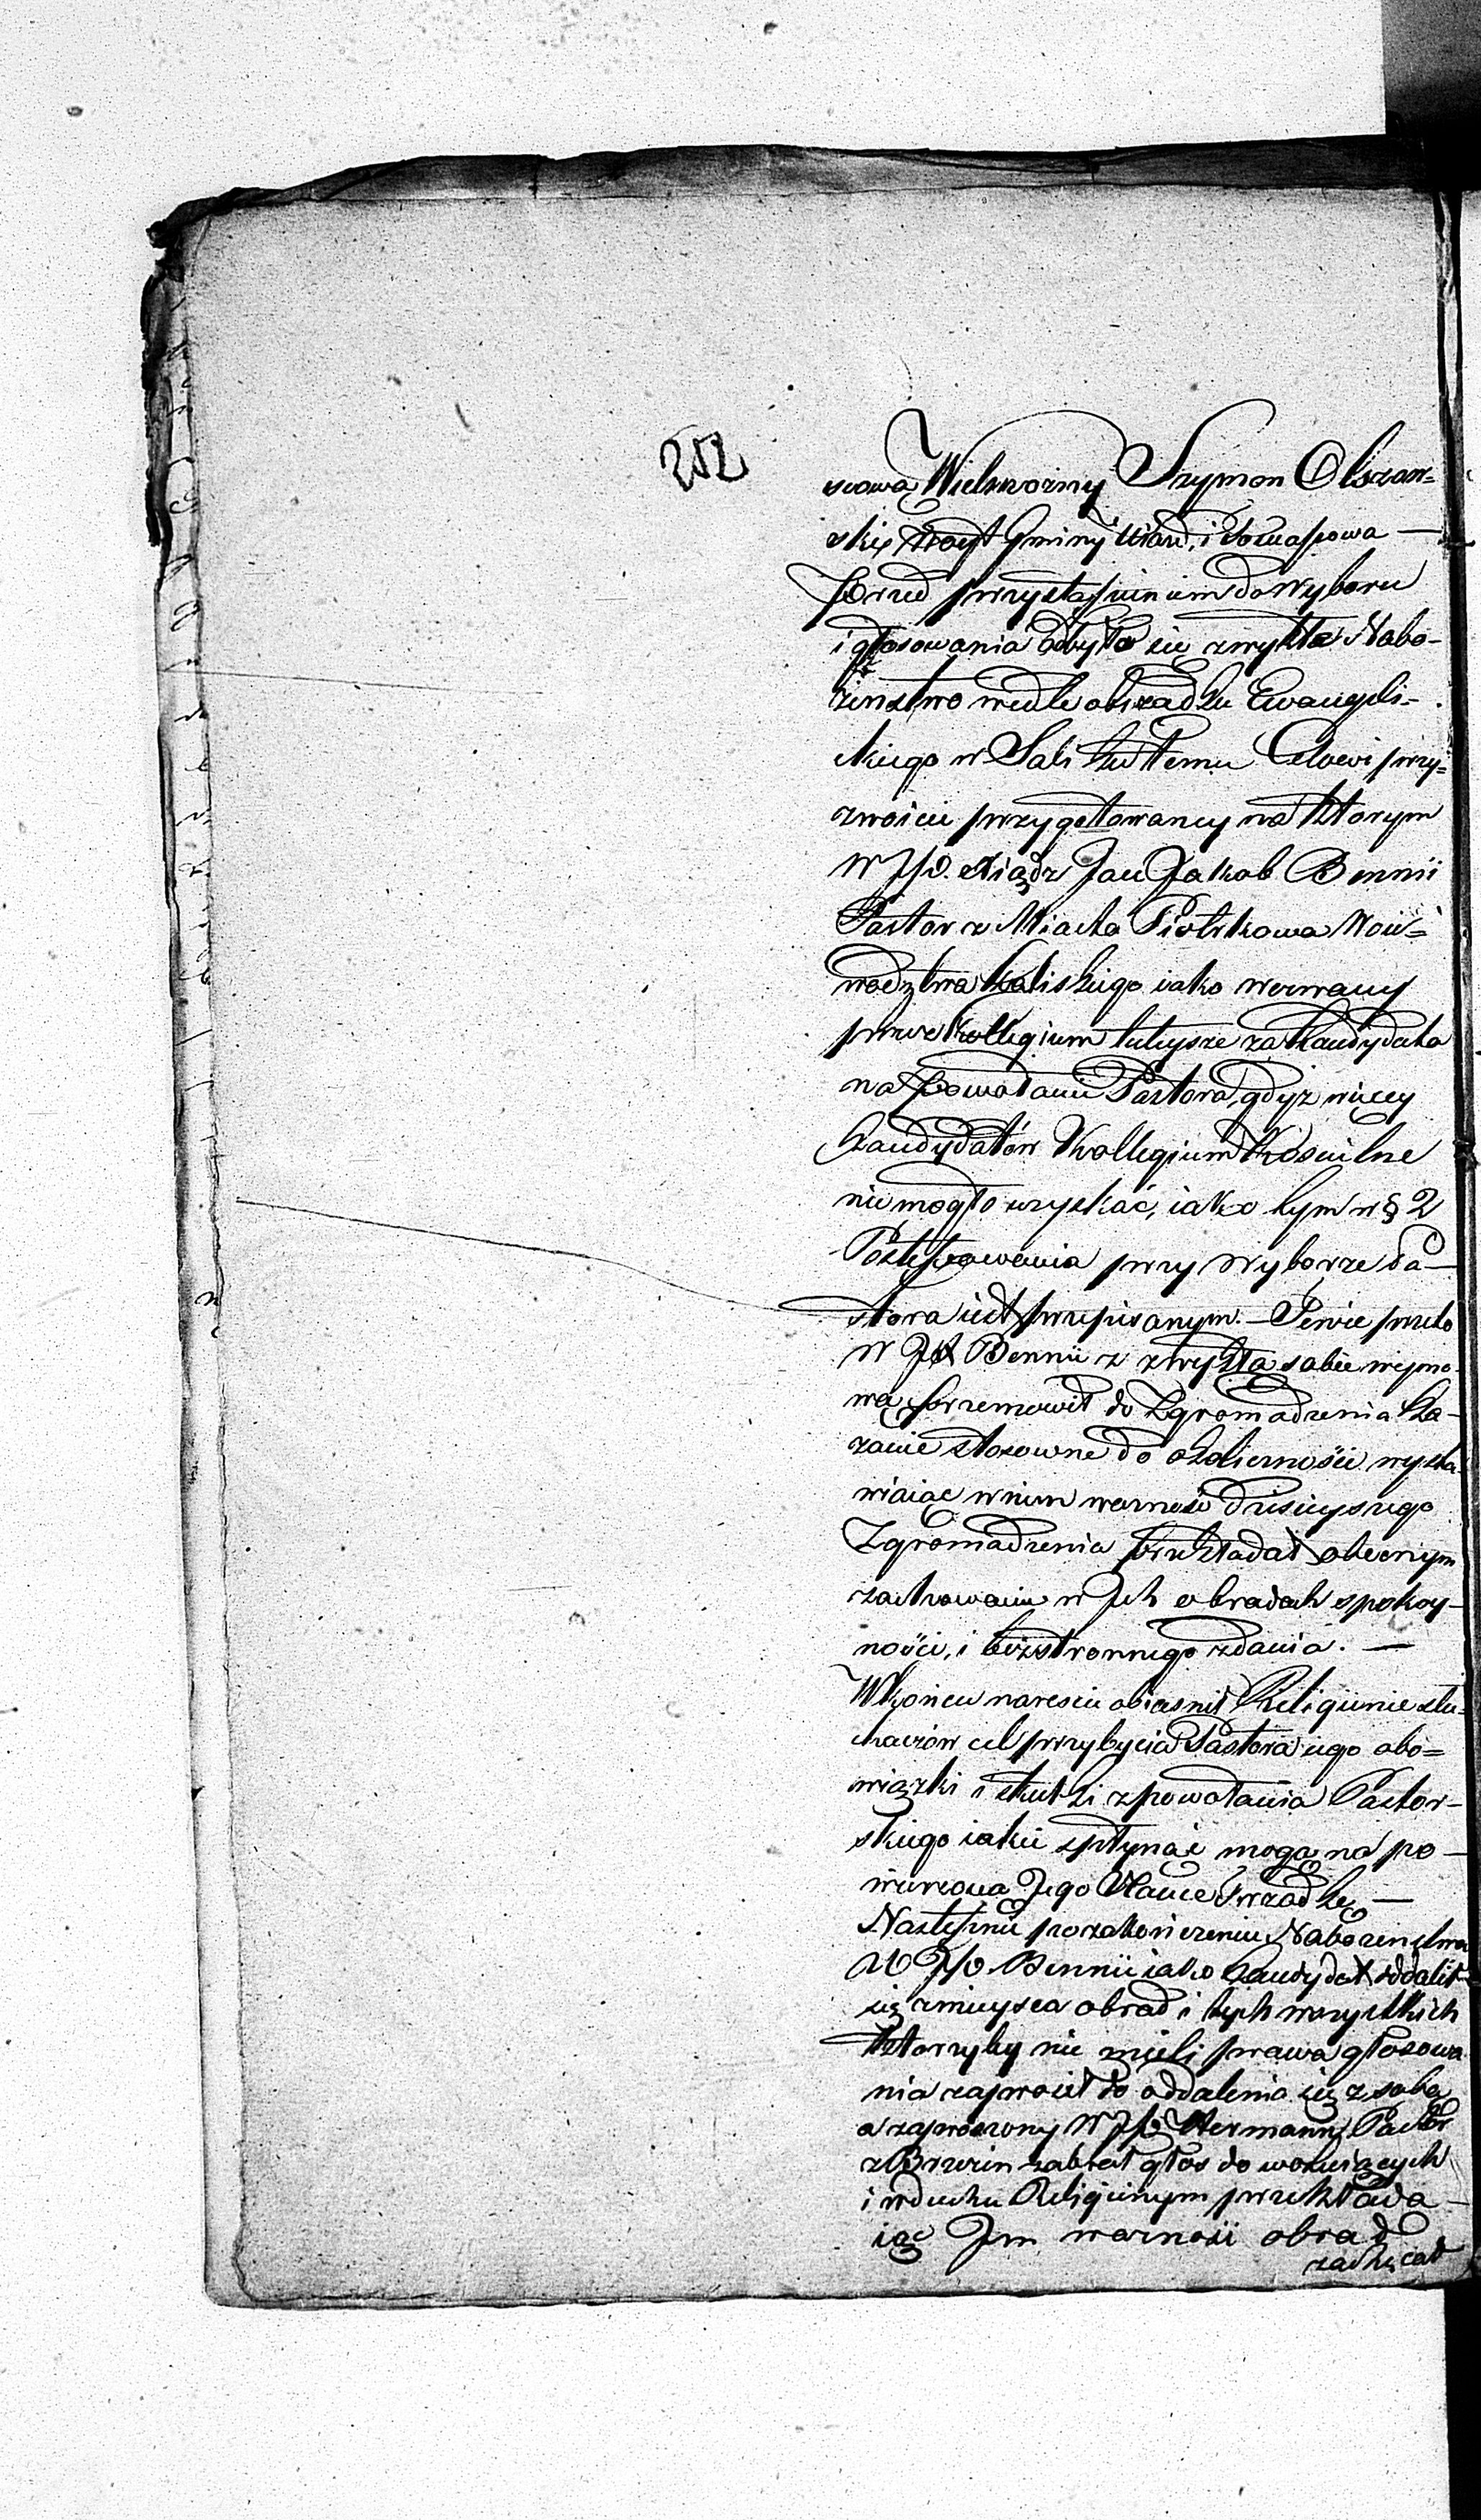 252
scową Wielmożny Szymon Olszań=
ski Woyt Gminy Uiazd, i Tomaszowa —
Przed przystąpieniem do Wyboru
i głosowania odbyło się zwykłe Nabo-
żenstwo wedle obrządku Ewangeli-
ckiego w Sali ku temu Celowi przy-
zwoicie przygotowaney na ktorym
W JP. Xiądz Jan Jakob Bennii
Pastor z Miasta Piotrkowa Woie-
wodztwa Kaliskiego iako wezwany
przez Kollegium tuteysze za Kandydata
na Powołanie Pastora, gdyż więcey
Kandydatów Kollegium Kościelne
nie mogło uzyskać, iako tym w § 2
Postępowania przy Wyborze Pa-
stora iest przepisanym. — Pewie przeto
W JX Bennii z zwykłą sobie wymo-
wą przemowił do Zgromadzenia Ka-
zanie stosowne do okoliczności wysta-
wiaiąc w nim ważność dzisieyszego
Zgromadzenia przekładał obecnym
zachowanie w Jch obradach spokoy-
ności, i bezstronnego zdania. —
W końcu nareście obiasnił Religiinie słu-
chaczów cel przybycia Pastora iego obo=
wiązki i skutki z powołania Pastor-
skiego iakie spłynąć mogą na po-
wierzona Jego Nauce Trzodkę —
Następnie po zakończeniu Nabożenstwa
W JP. Bennii iako Kandydat oddalił
się z mieysca obrad i tych wszystkich
ktorzyby nie mieli prawa głosowa
nia zaprosił do oddalenia się z sobą
a zaproszony W JP. Hermann Pastor
z Brzezin zabrał głos do wotuiących
i w duchu Religiinym przekłada-
iąc Jm ważność obrad
zachęcał